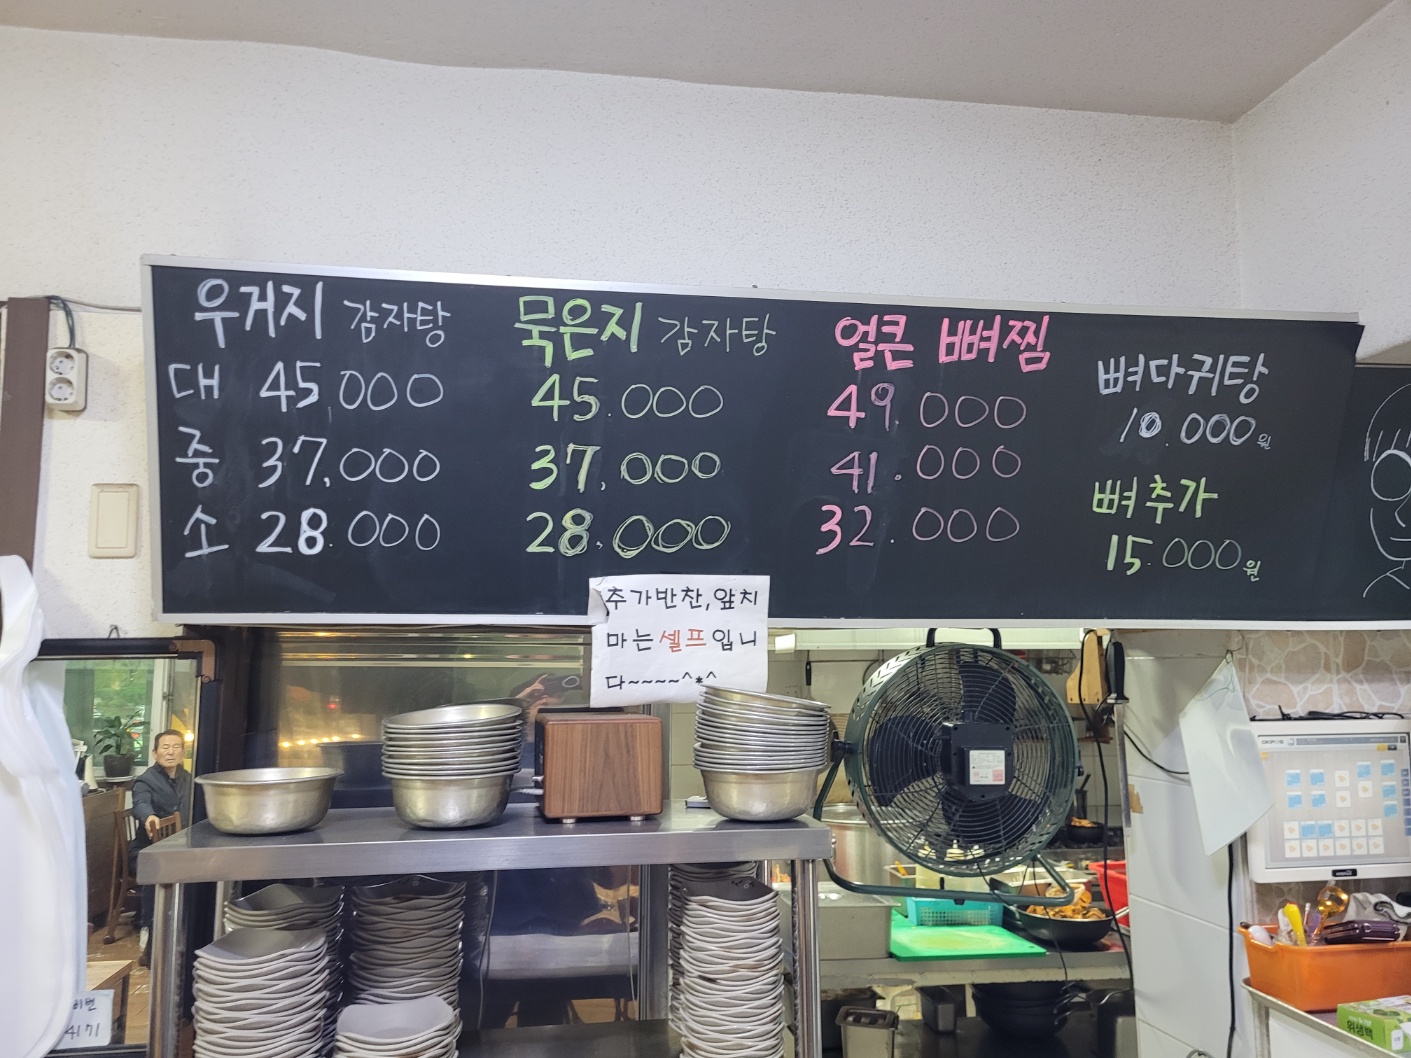 우거지 감자탕
대 45,000
중 37,000
소 28.000
묵은지 감자탕
45.000
37,000
28,000
얼큰 뼈찜
49.000
41.000
32.000
뼈다귀탕
10.000원
뼈추가
15.000원
추가반찬,앞치
마는셀프입니
다~~~~^*^
위생백